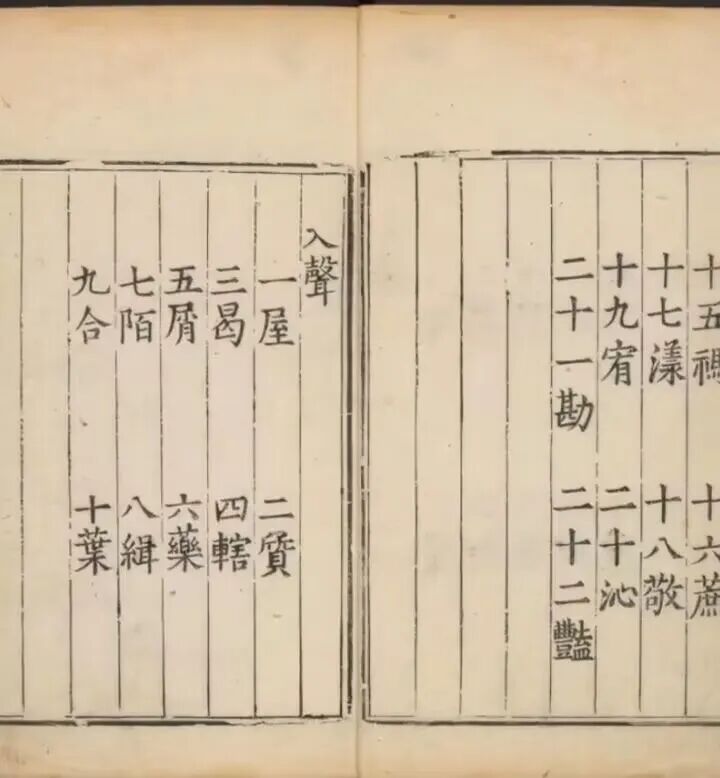 十五禡 十六蔗
十七漾 十八敬
十九宥 二十沁
二十一勘 二十二豔
入聲
一屋 二質
三曷 四轄
五屑 六藥
七陌 八緝
九合 十葉